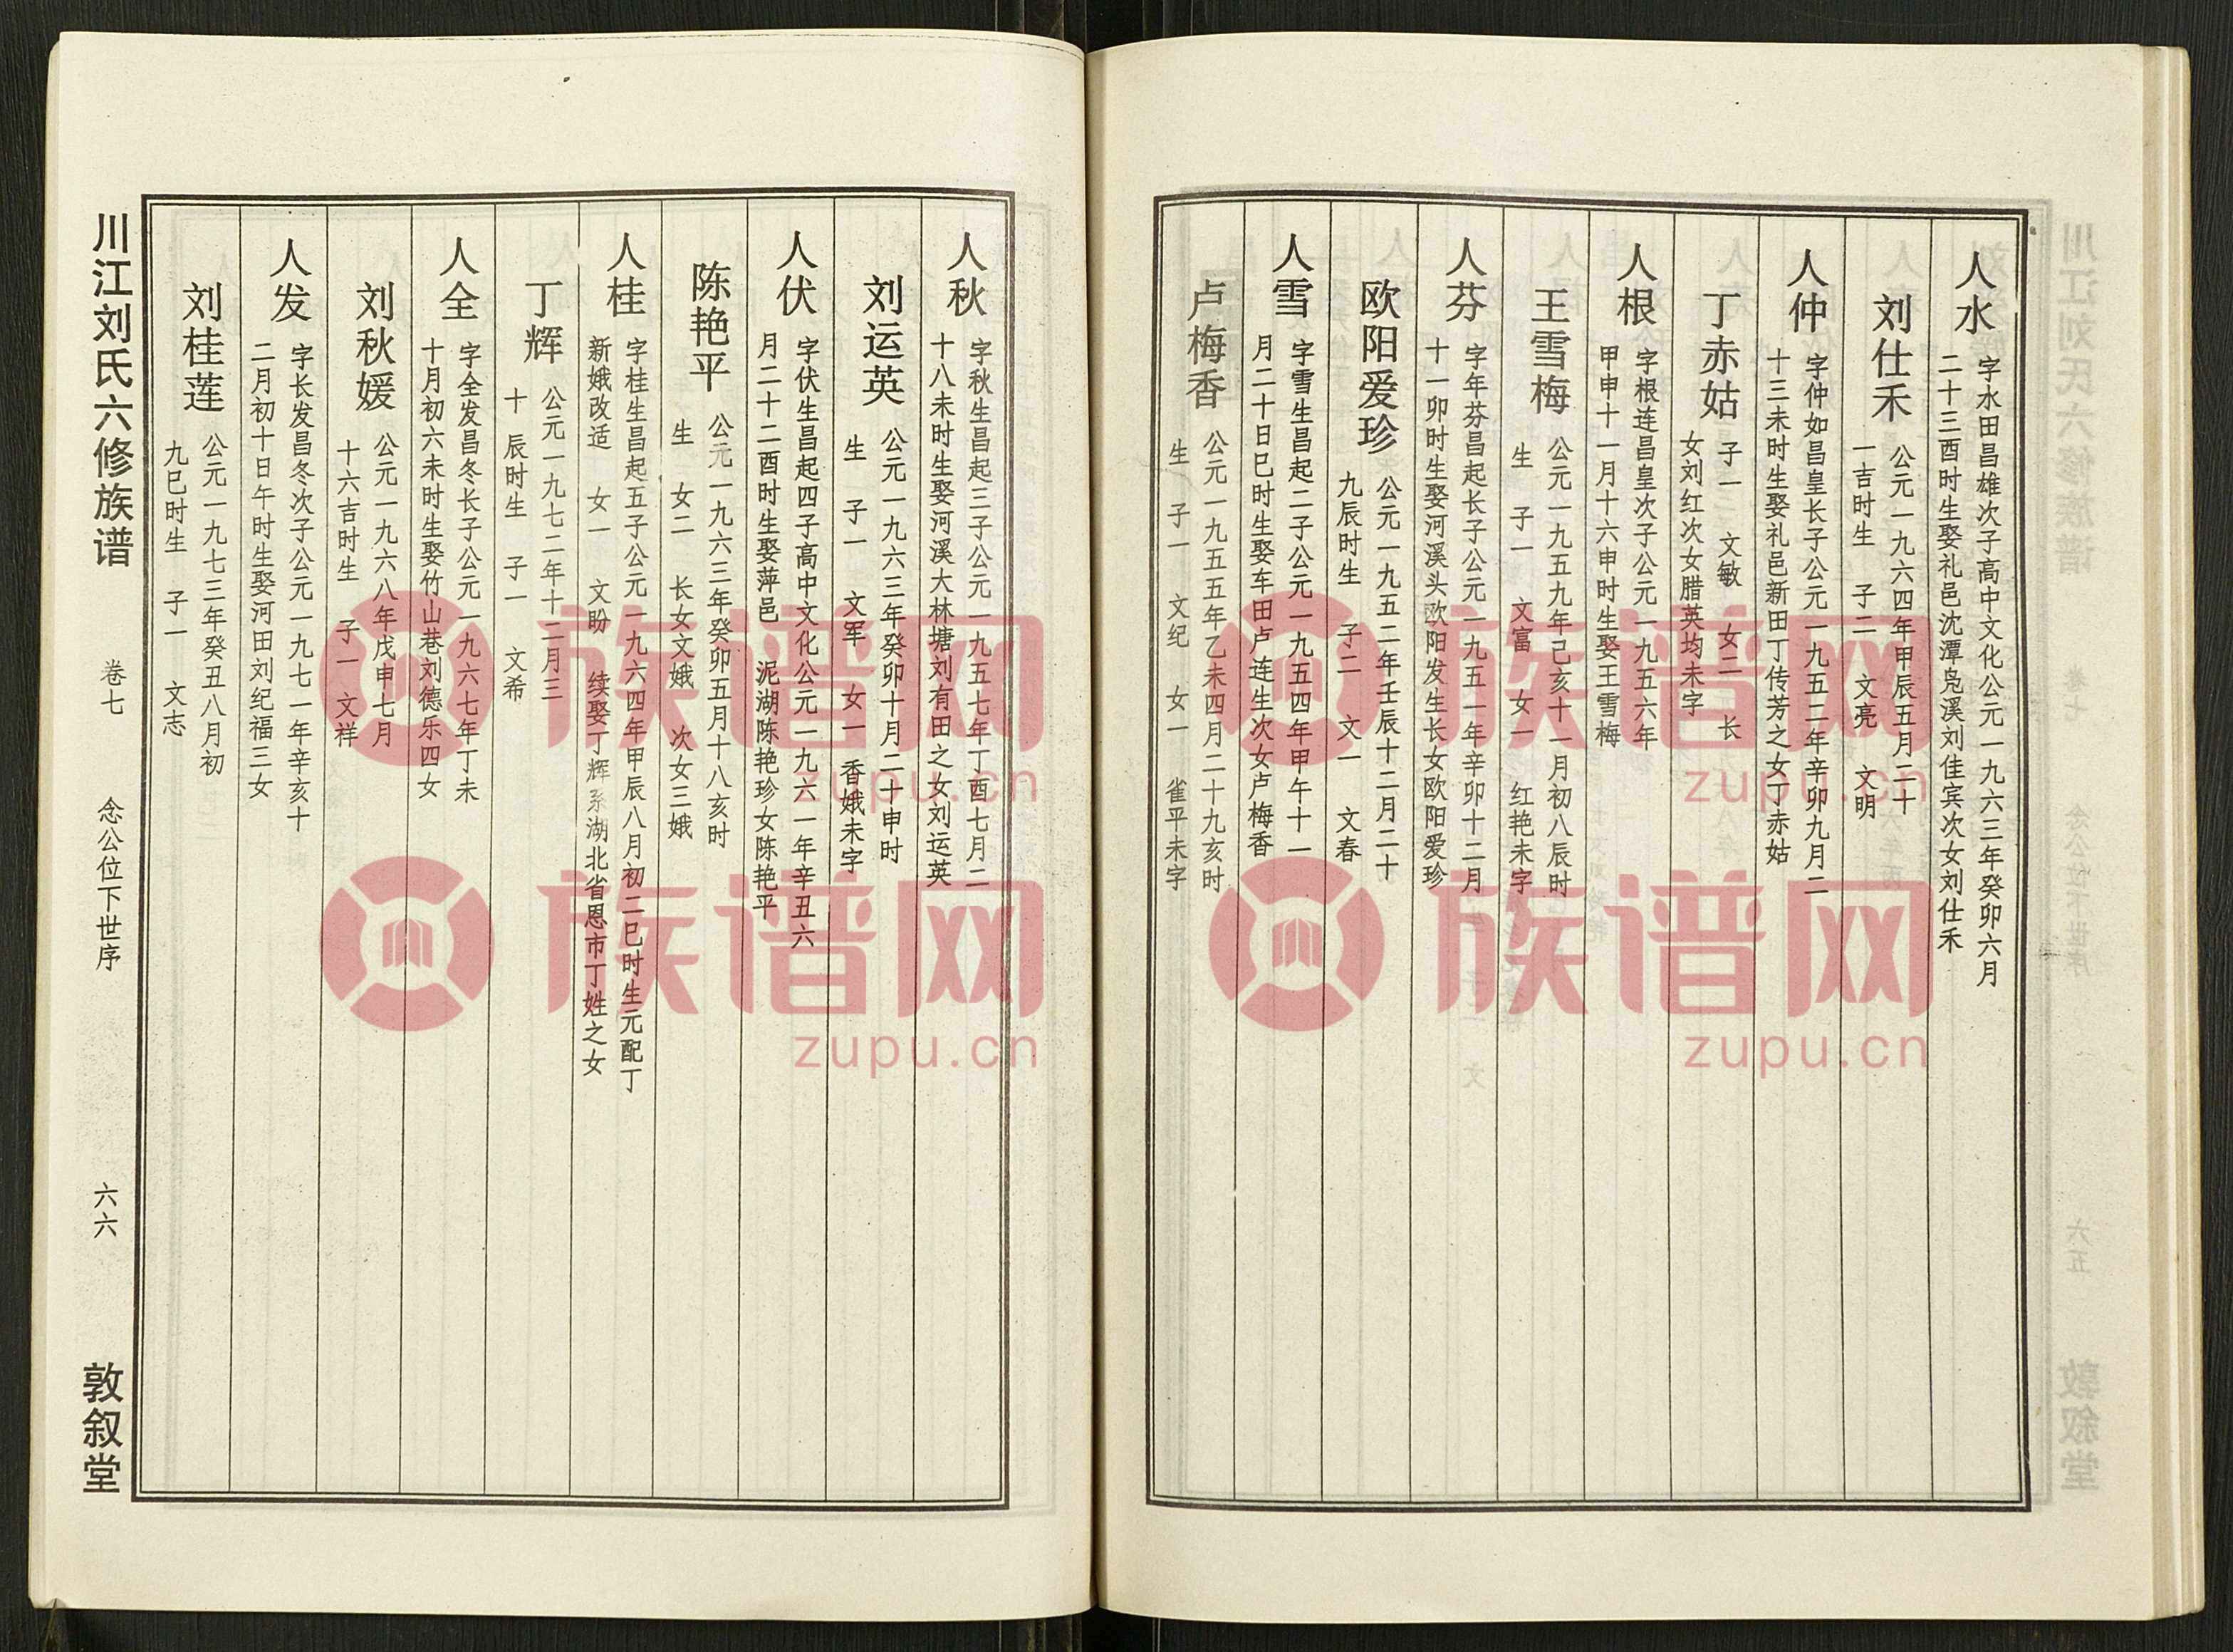 人水
字水田昌雄次子高中文化公元一九六三年癸卯六月
二十三酉时生娶礼邑沈潭凫溪刘佳宾次女刘仕禾
刘仕禾
公元一九六四年甲辰五月二十
一吉时生 子二 文亮 文明
人仲
字仲如昌皇长子公元一九五二年辛卯九月二
十三未时生娶礼邑新田丁传芳之女丁赤姑
丁赤姑
子一 文敏 女二 长
女刘红次女腊英均未字
人根
字根连昌皇次子公元一九五六年
甲申十一月十六申时生娶王雪梅
王雪梅
公元一九五九年己亥十一月初八辰时
生 子一 文富 女一 红艳未字
人芬
字年芬昌起长子公元一九五一年辛卯十二月
十一卯时生娶河溪头欧阳发生长女欧阳爱珍
欧阳爱珍
公元一九五二年壬辰十二月二十
九辰时生 子二 文一 文春
人雪
字雪生昌起二子公元一九五四年甲午十一
月二十日巳时生娶车田卢连生次女卢梅香
卢梅香
公元一九五五年乙未四月二十九亥时
生 子一 文纪 女一 雀平未字
人秋
字秋生昌起三子公元一九五七年丁酉七月二
十八未时生娶河溪大林塘刘有田之女刘运英
刘运英
公元一九六三年癸卯十月二十申时
生 子一 文军 女一香娥未字
人伏
字伏生昌起四子高中文化公元一九六一年辛丑六
月二十二酉时生娶萍邑 泥湖陈艳珍女陈艳平
陈艳平
公元一九六三年癸卯五月十八亥时
生 女二 长女文娥 次女三娥
人桂
字桂生昌起五子公元一九六四年甲辰八月初二巳时生元配丁
新娥改适 女一 文盼 续娶丁辉系湖北省恩市丁姓之女
丁辉
公元一九七二年十二月三
十 辰时生 子一 文希
人全
字全发昌冬长子公元一九六七年丁未
十月初六未时生娶竹山巷刘德乐四女
刘秋媛
公元一九六八年戊申七月
十六吉时生 子一 文祥
人发
字长发昌冬次子公元一九七一年辛亥十
二月初十日午时生娶河田刘纪福三女
刘桂莲
公元一九七三年癸丑八月初
九巳时生 子一 文志
川江刘氏六修族谱 卷七 念公位下世序 六六 敦叙堂
族谱网
zupu.cn
族谱网
zupu.cn
族谱网
zupu.cn
族谱网
zupu.cn